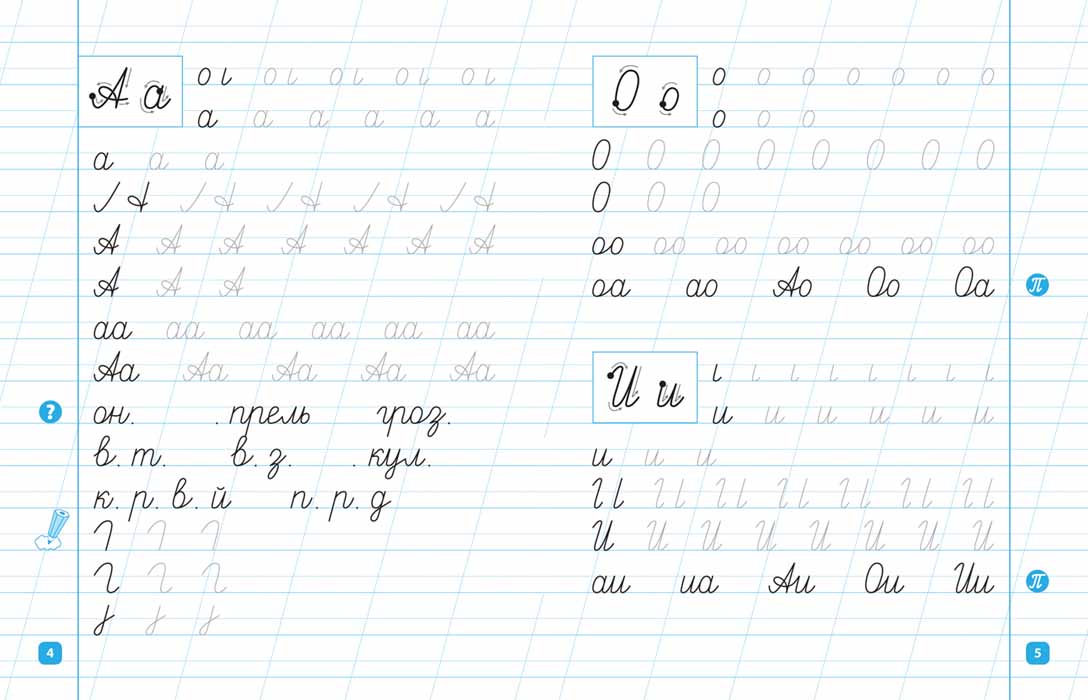 А а
а а а а а а
а а а
А А А А А
А А А А А А А
А А А
аа аа аа аа аа аа
Аа Аа Аа Аа Аа
?
он. .прель гроз.
в.т. в.з. .кул.
к.р.в.й п.р.д
4
О о
о о о о о о о о
о о о
О О О О О О О О
О О О
оо оо оо оо оо оо оо
оа ао Ао Оо Оа
п
И и
и и и и и и
и и и
И И И И И И И И
аи иа Аи Ои Ии
п
5